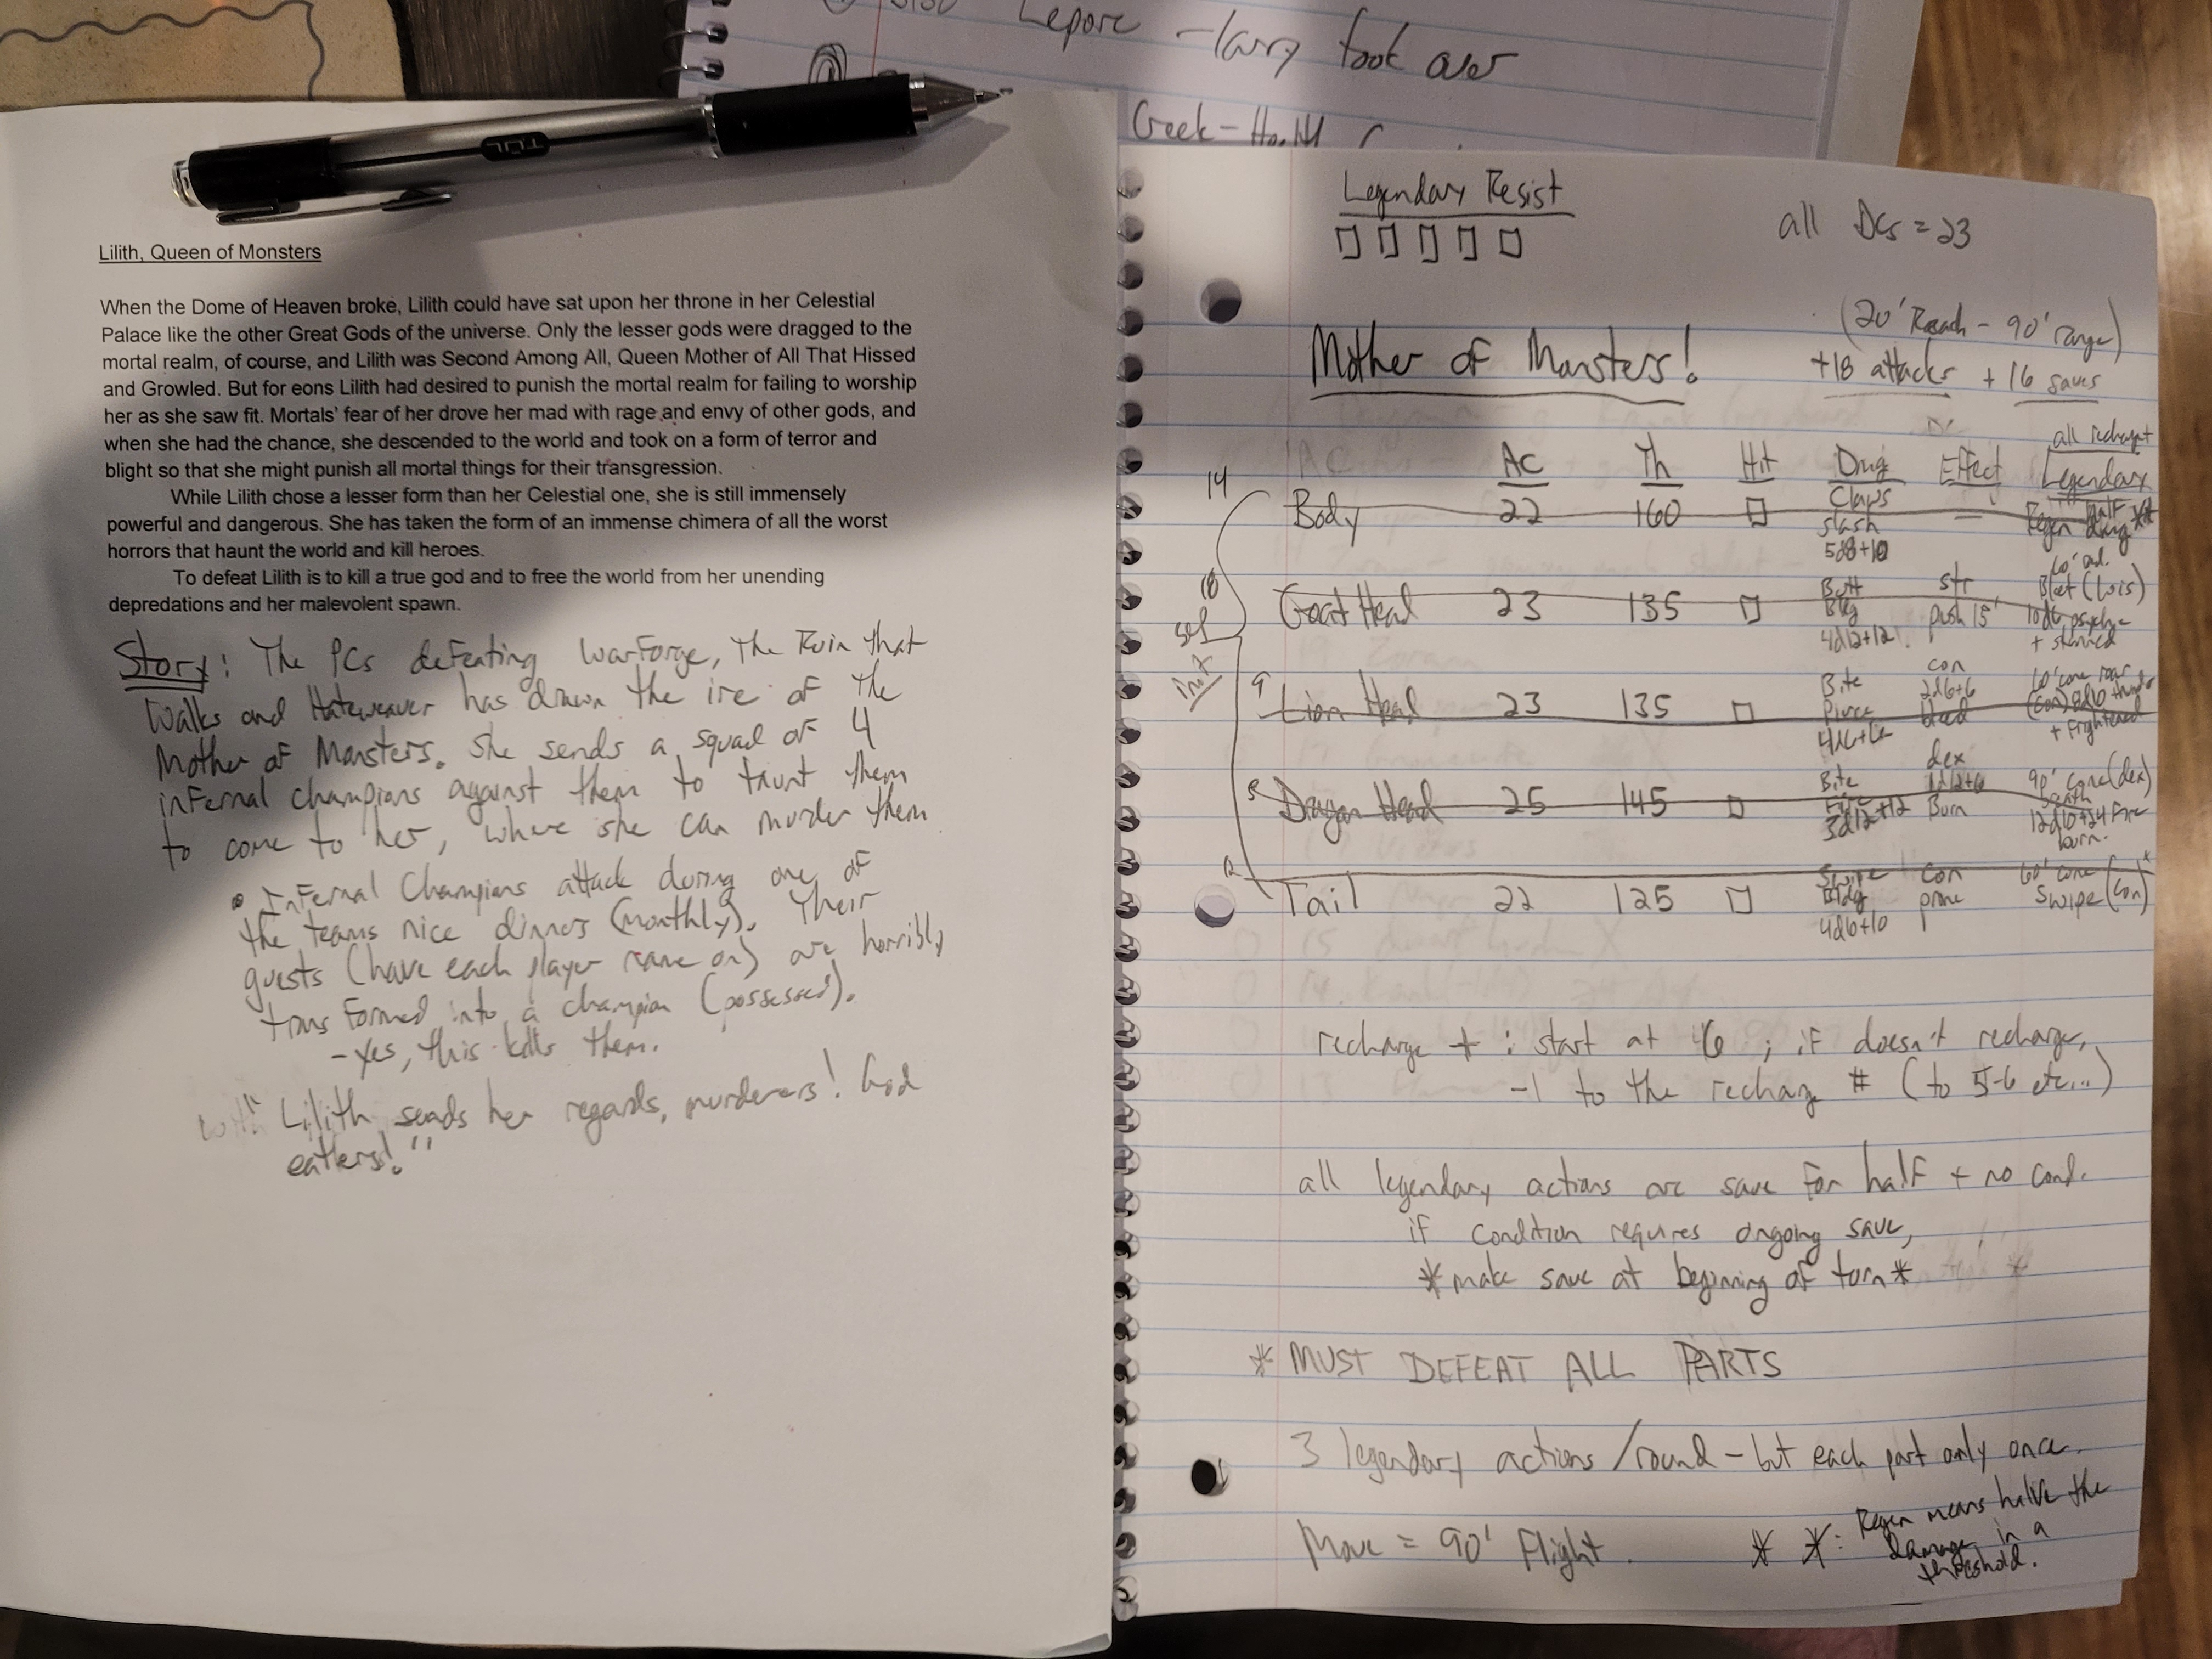 Lepore - larry took over
Geek -
TUL
Lilith, Queen of Monsters
When the Dome of Heaven broke, Lilith could have sat upon her throne in her Celestial
Palace like the other Great Gods of the universe. Only the lesser gods were dragged to the
mortal realm, of course, and Lilith was Second Among All, Queen Mother of All That Hissed
and Growled. But for eons Lilith had desired to punish the mortal realm for failing to worship
her as she saw fit. Mortals' fear of her drove her mad with rage and envy of other gods, and
when she had the chance, she descended to the world and took on a form of terror and
blight so that she might punish all mortal things for their transgression.
While Lilith chose a lesser form than her Celestial one, she is still immensely
powerful and dangerous. She has taken the form of an immense chimera of all the worst
horrors that haunt the world and kill heroes.
To defeat Lilith is to kill a true god and to free the world from her unending
depredations and her malevolent spawn.
Story: The PCs defeating WarForge, The Ruin that
Walks and Hateweaver has drawn the ire of the
Mother of Monsters. She sends a squad of 4
infernal champions against them to taunt them
to come to her, where she can murder them
• Infernal Champions attack during one of
the teams nice dinners (monthly). Their
guests (have each player name on) are horribly
transformed into a champion (possessed).
- Yes, this kills them.
"Lilith sends her regards, murderers! God
eaters!"
Legendary Resist
all DCs = 23
(20' Reach - 90' range)
Mother of Monsters!
+18 attacks + 16 saves
all recharge+
AC Th Hit Dmg Effect Legendary
14 Body 22 160 Claws slash 5d8+10 — Regen half dmg **
18 Goat Head 23 135 Butt Bldg 4d12+12 str push 15' 60' rad. Bleat (Wis) 10d6 psychic + stunned
self init
9 Lion Head 23 135 Bite Pierce con 2d6+6 bleed 60' cone roar (con) 8d6 thunder + frightened
Dragon Head 25 145 Bite Fire 3d12+12 dex 1d12+6 Burn 90' cone (dex) breath 12d10+24 Fire burn.
12 Tail 22 125 Swipe Bldg 4d6+10 con prone 60' cone swipe (con)*
recharge + : start at 6 ; if doesn't recharge,
-1 to the recharge # (to 5-6 etc...)
all legendary actions are save for half + no cond.
if condition requires ongoing save,
*make save at beginning of turn*
* MUST DEFEAT ALL PARTS
3 legendary actions/round - but each part only once.
Move = 90' Flight.
* *: Regen means halve the
damage in a
threshold.